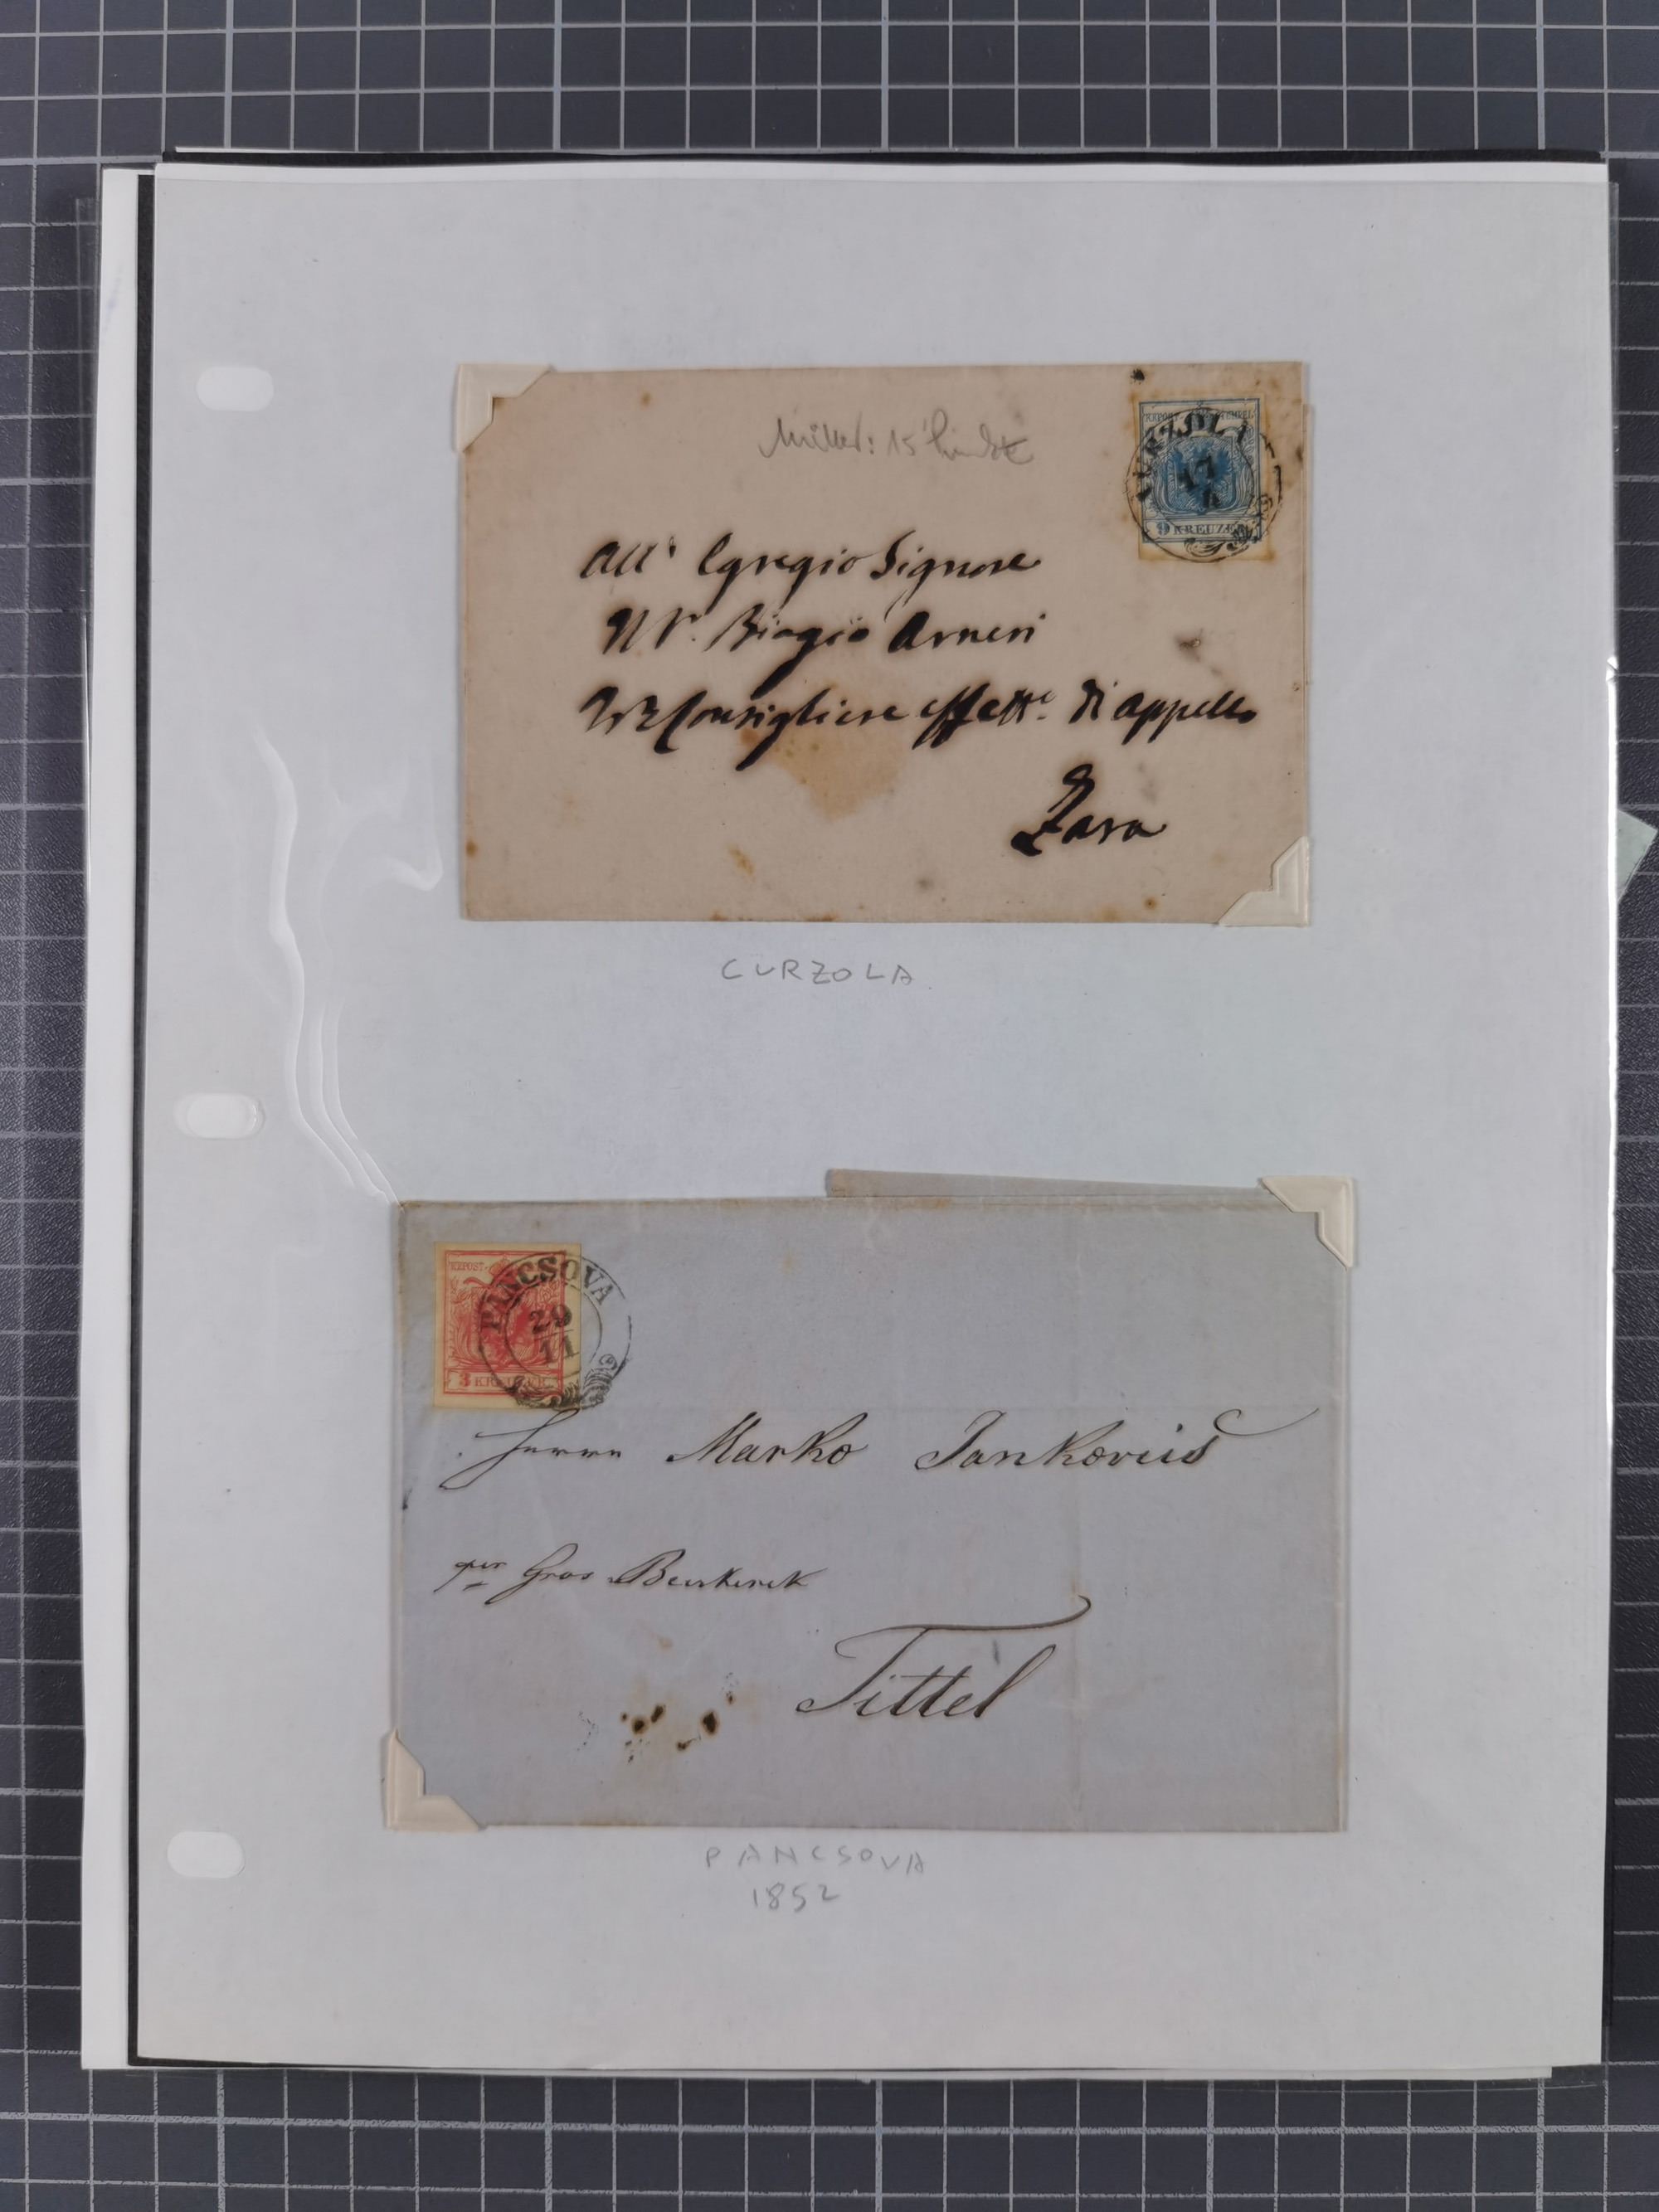 Müller: 15
KKPOST-STEMPEL
CURZOLA
17
4
9 KREUZER
All' Egregio Signore
Biagio Arneri
Consigliere effett.e di appello
Zara
CURZOLA
KKPOST-
PANCSOVA
29
11
3 KREUZER
Herrn Marko Jankovics
per Gros Becskerek
Tittel
PANCSOVA
1852